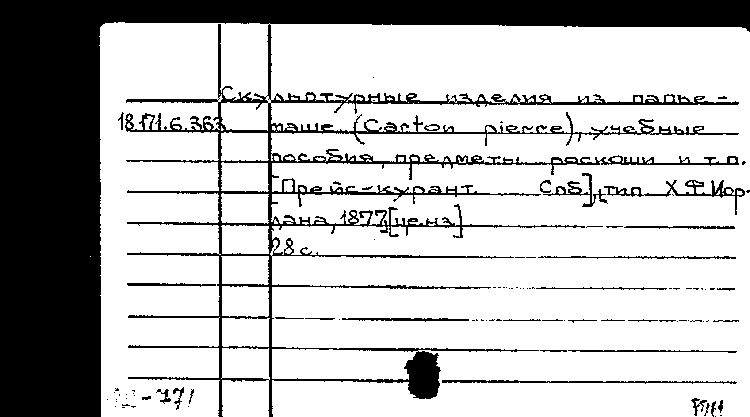 Скульптурные изделия из папье-
18.171.6.363 маше (Carton pierre), учебные
пособия, предметы роскоши и т.п.
[Прейс-курант. Спб], [тип. Х.Ф. Иор-
дана, 1877] [ценз.]
28 с.
-771